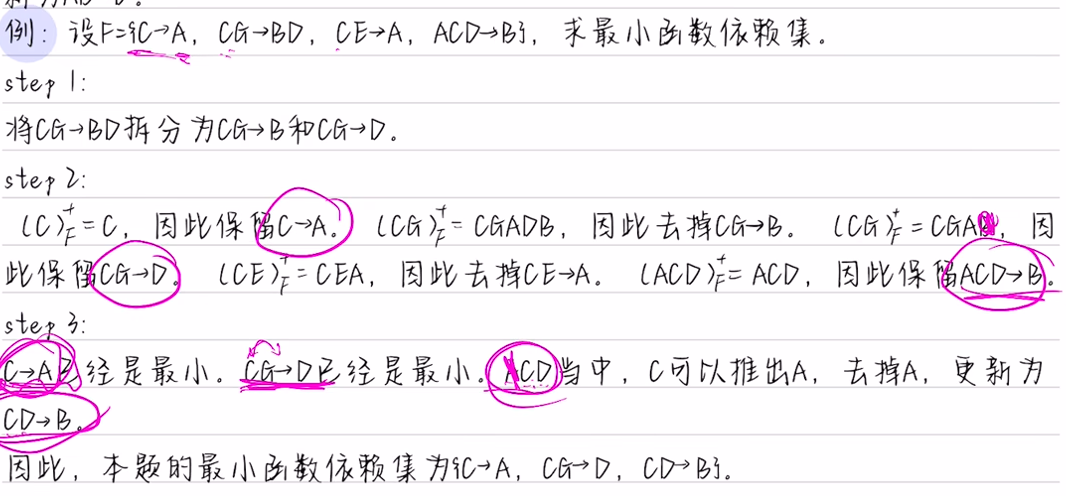 例: 设F={C→A, CG→BD, CE→A, ACD→B}, 求最小函数依赖集。
step 1:
将CG→BD拆分为CG→B和CG→D。
step 2:
(C)⁺F=C, 因此保留C→A。 (CG)⁺F=CGADB, 因此去掉CG→B。 (CG)⁺F=CGA, 因
此保留CG→D。 (CE)⁺F=CEA, 因此去掉CE→A。 (ACD)⁺F=ACD, 因此保留ACD→B。
step 3:
C→A已经是最小。CG→D已经是最小。ACD当中, C可以推出A, 去掉A, 更新为
CD→B。
因此, 本题的最小函数依赖集为{C→A, CG→D, CD→B}。